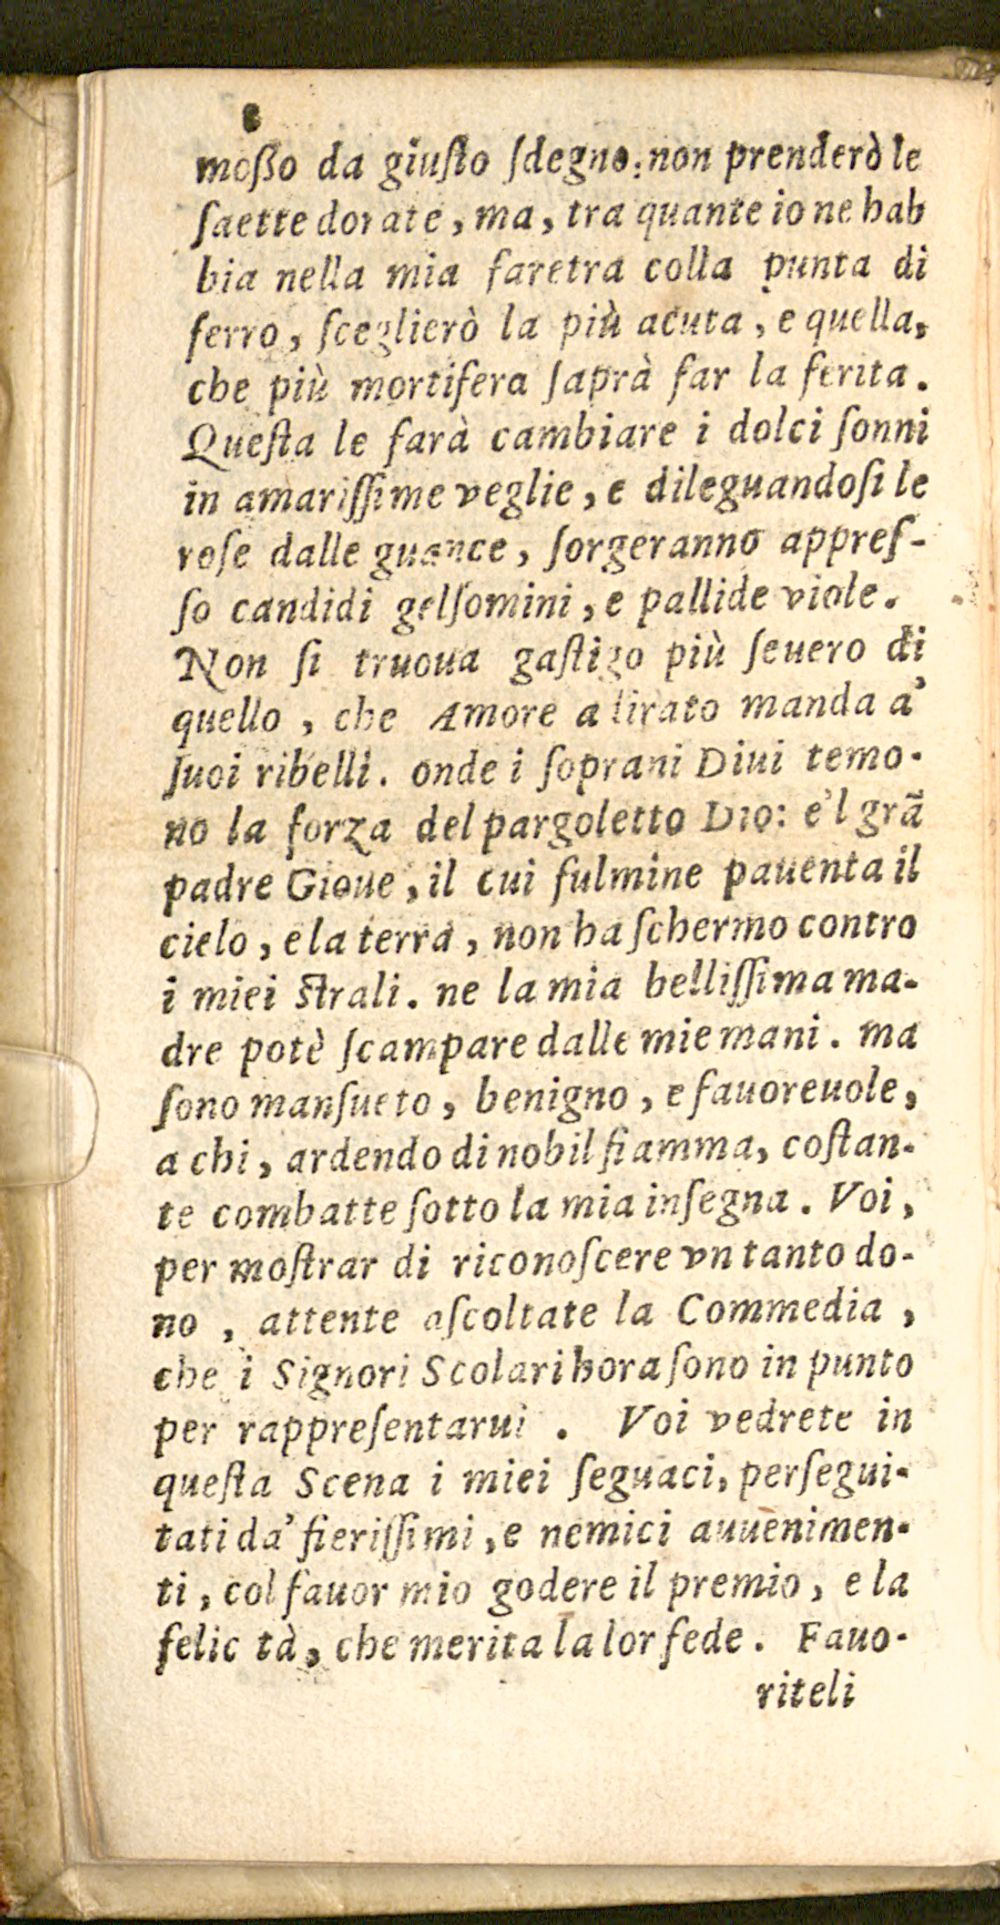 8
moßo da giuſto ſdegno: non prenderò le
ſaette dorate, ma, tra quante io ne hab
bia nella mia faretra colla punta di
ferro, ſceglierò la più acuta, e quella,
che più mortifera ſaprà far la ferita.
Queſta le farà cambiare i dolci ſonni
in amariſſime veglie, e dileguandoſi le
roſe dalle guance, ſorgeranno appreſ-
ſo candidi gelſomini, e pallide viole.
Non ſi truoua gaſtigo più ſeuero di
quello, che Amore adirato manda a'
ſuoi ribelli. onde i ſoprani Diui temo-
no la forza del pargoletto Dio: e'l grã
padre Gioue, il cui fulmine pauenta il
cielo, e la terra, non ha ſchermo contro
i miei ſtrali. ne la mia belliſſima ma-
dre potè ſcampare dalle mie mani. ma
ſono manſueto, benigno, e fauoreuole,
a chi, ardendo di nobil fiamma, coſtan-
te combatte ſotto la mia inſegna. Voi,
per moſtrar di riconoſcere vn tanto do-
no, attente aſcoltate la Commedia,
che i Signori Scolari hora ſono in punto
per rappreſentarui. Voi vedrete in
queſta Scena i miei ſeguaci, perſegui-
tati da' fieriſſimi, e nemici auuenimen-
ti, col fauor mio godere il premio, e la
felic tà, che merita la lor fede. Fauo-
riteli